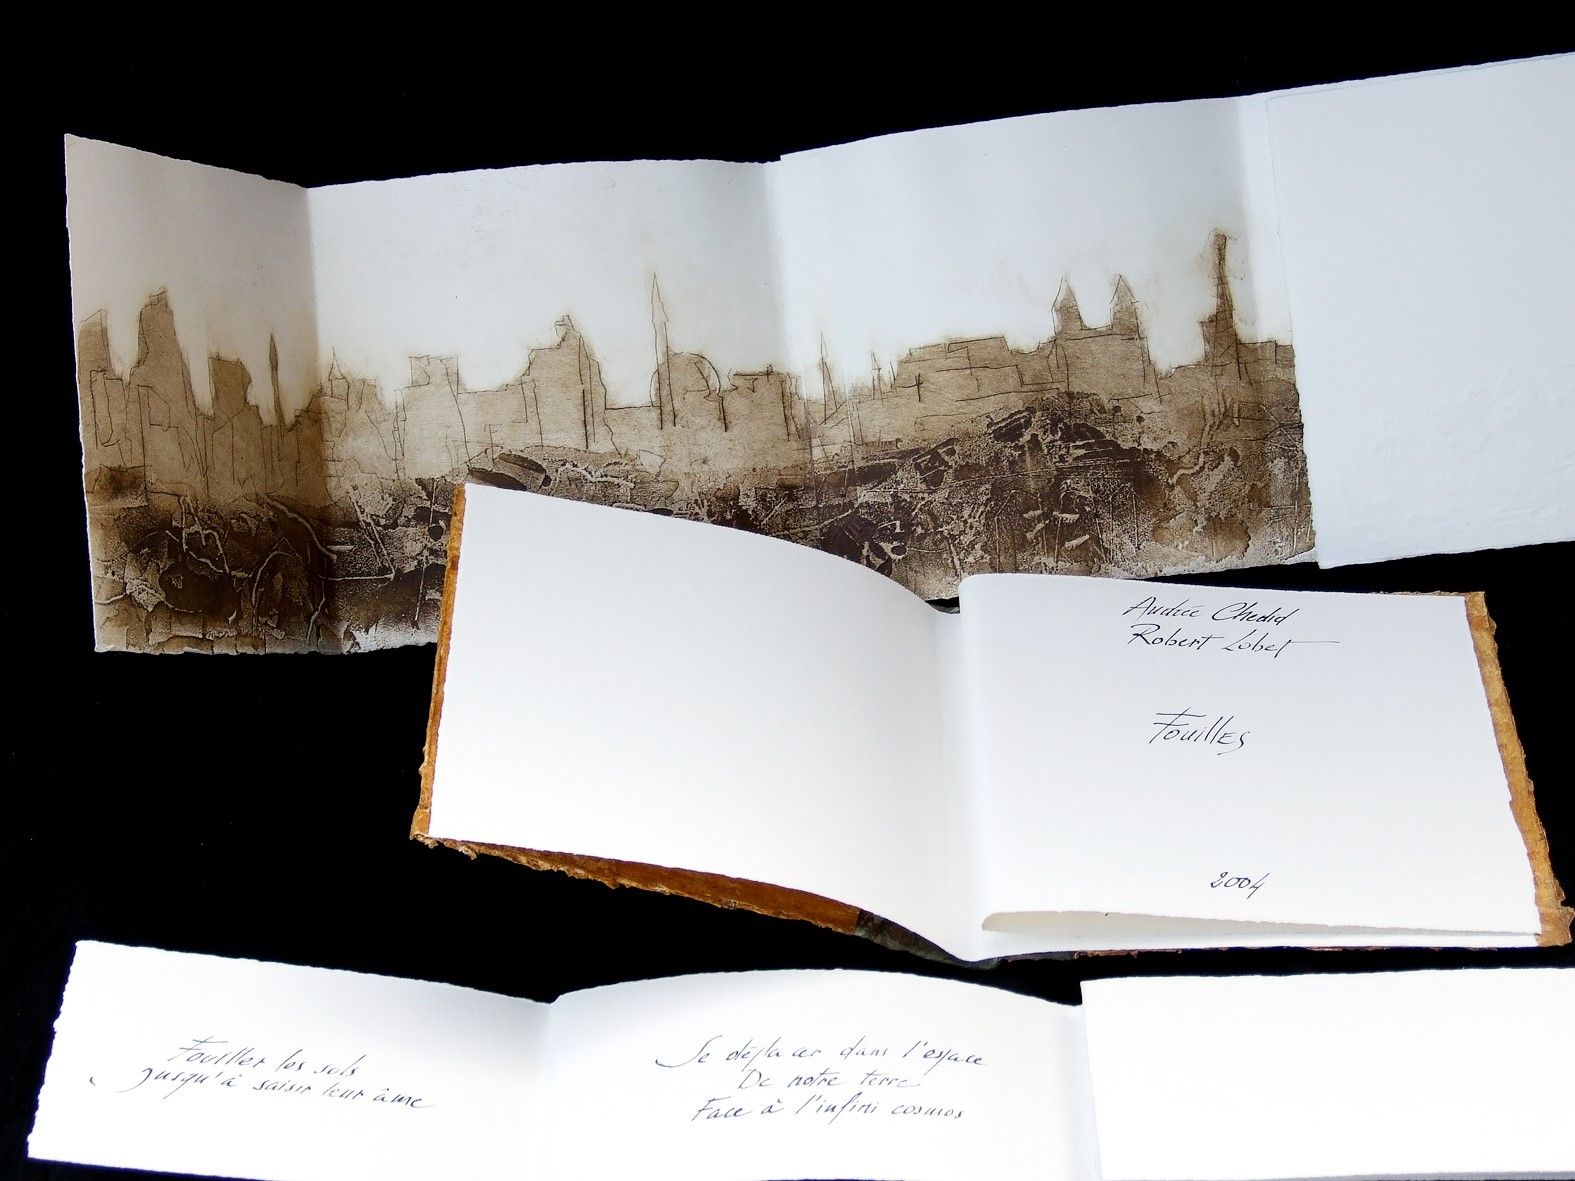 Andrée Chedid
Robert Lobet
Fouilles
2004
Fouiller les sols
Jusqu'à saisir leur âme
Se déplacer dans l'espace
De notre terre
Face à l'infini cosmos